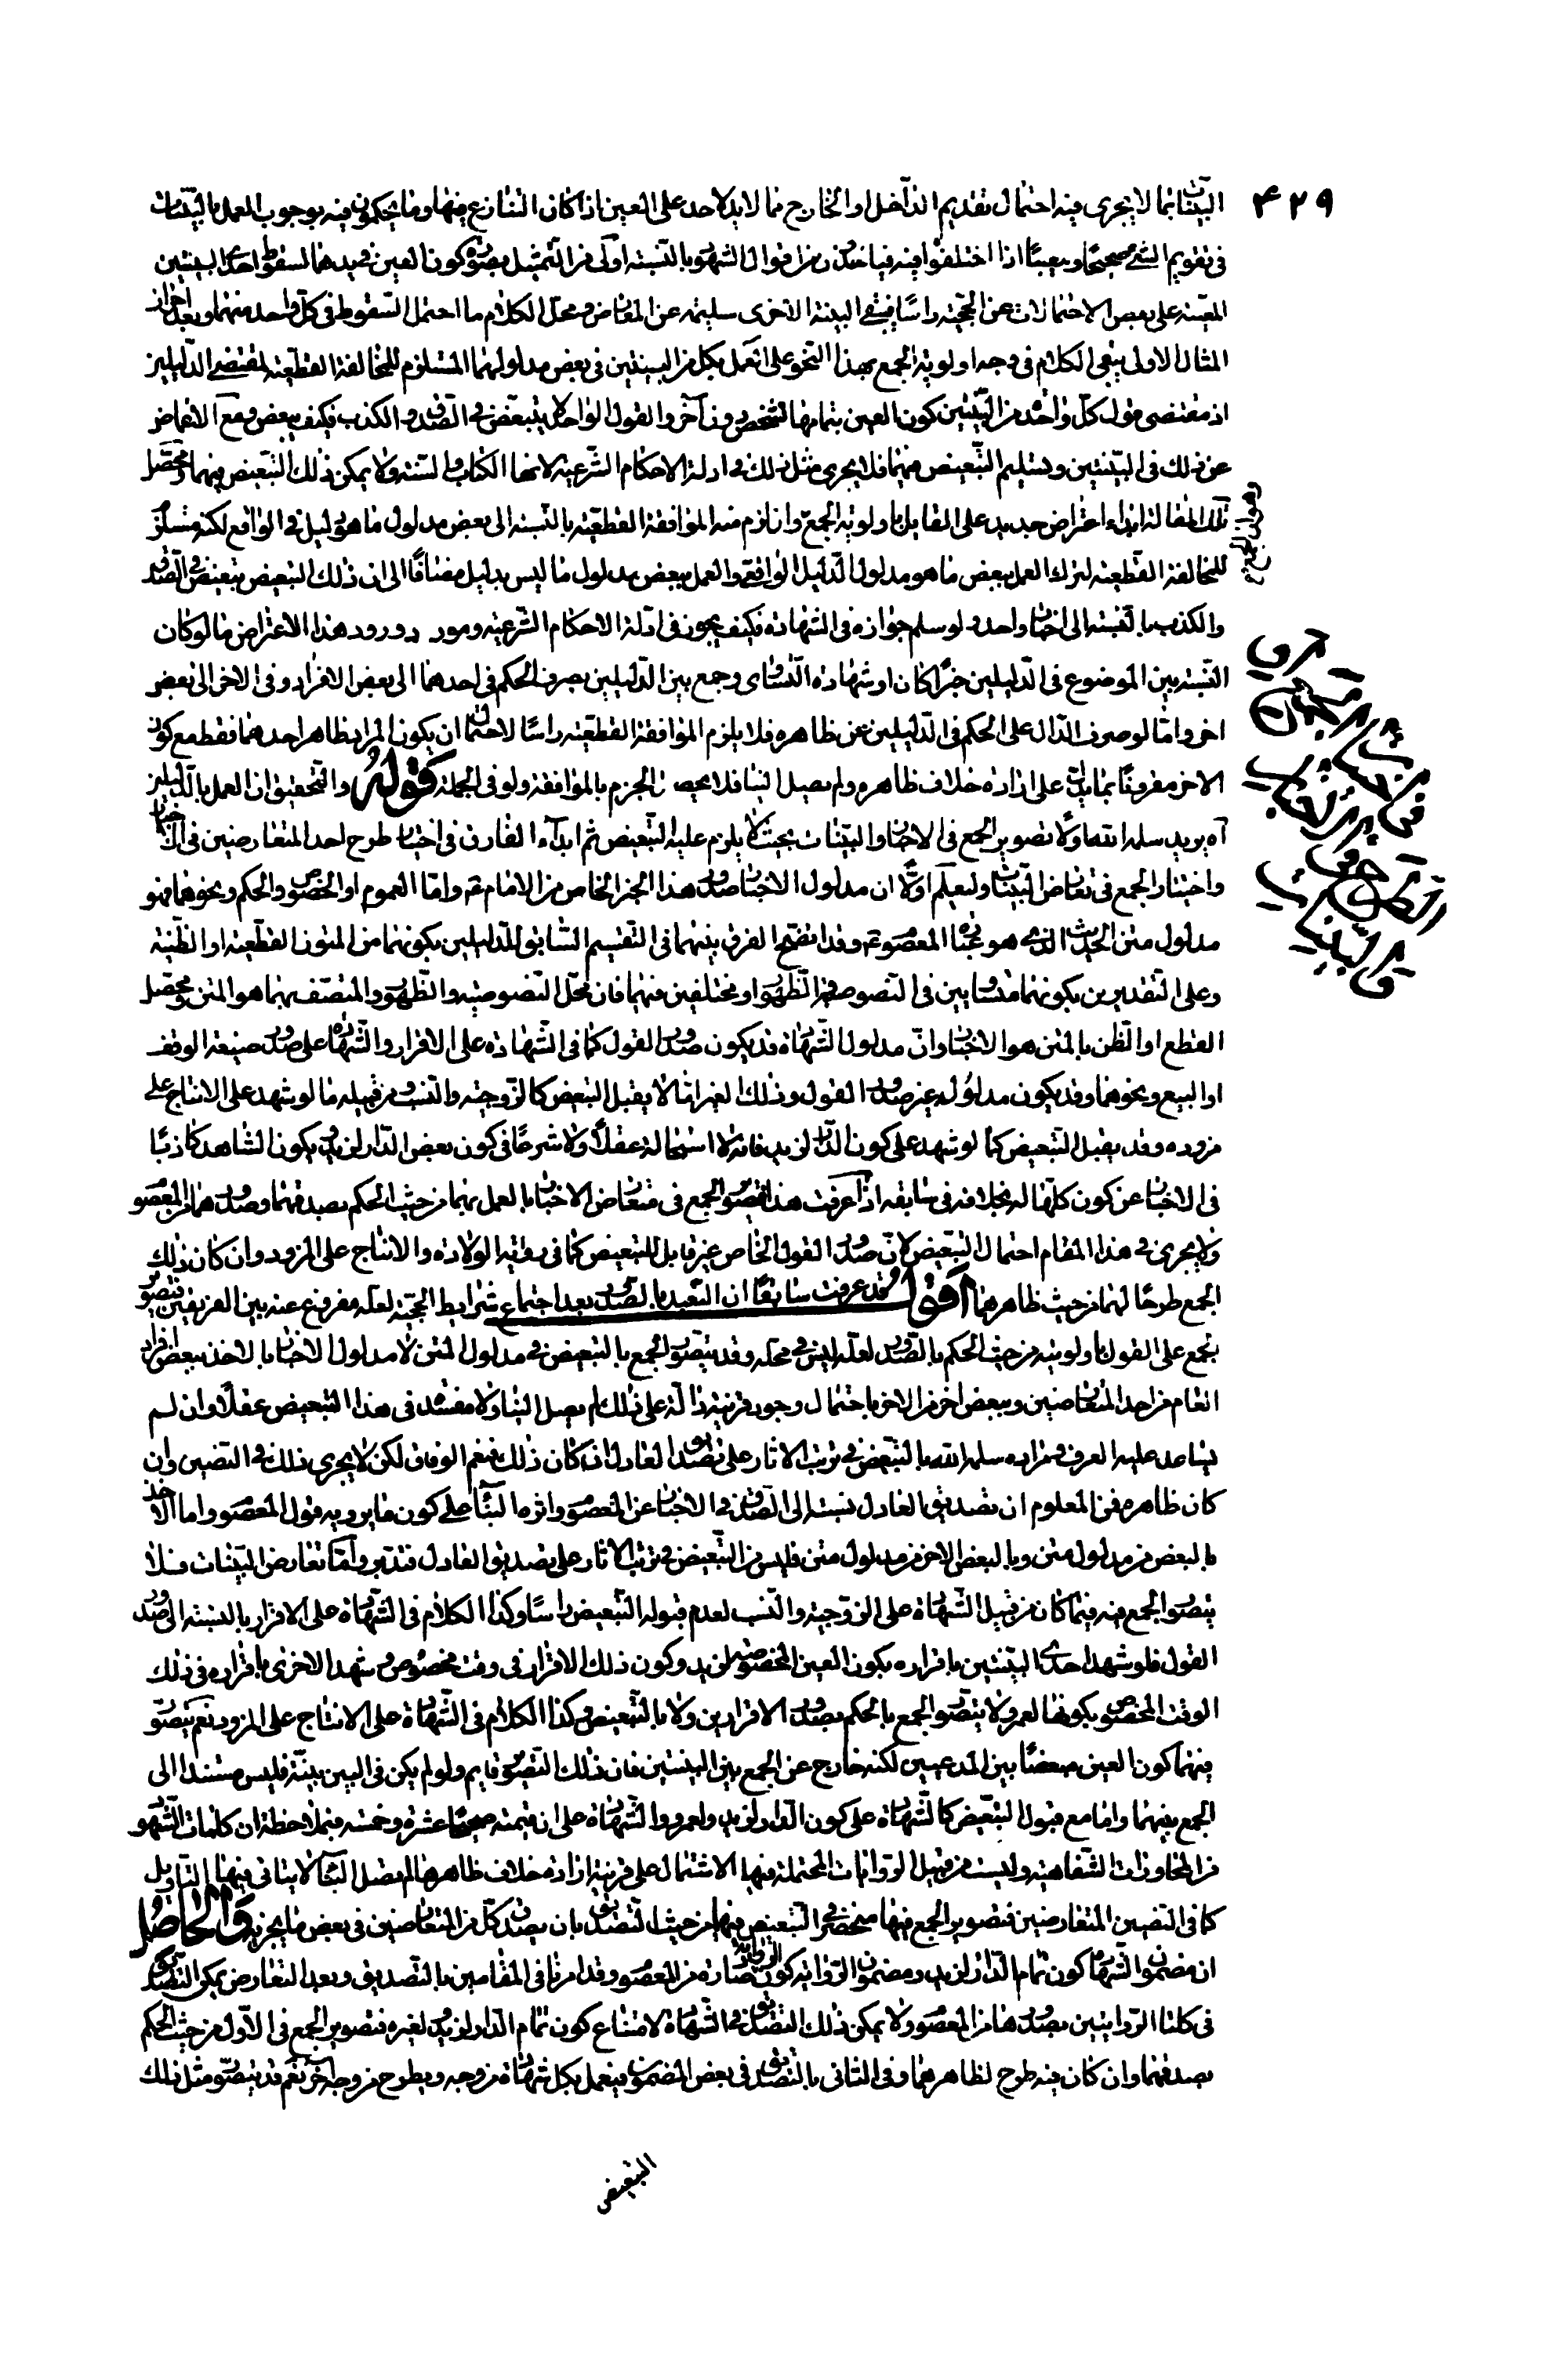 ۴۲۹
البينات مما لا يجرى فيه احتمال تقديم الداخل والخارج مما لا يد لاحد على العين اذا كان التنازع فيها وما يحكمون فيه بوجوب العمل بالبينات
فى تقويم الشئ صحيحا ومعيبا اذا اختلفوا فيه فيما خذ من اقوال الشهود بالنسبة اولى من التمثيل بصورة كون العين فى يدهما لسقوط احدى البينتين
المعينة على بعض الاحتمالات عن الحجية راسا فيبقى البينة الاخرى سليمة عن المعارض ومحل الكلام ما احتمل السقوط فى كل واحد منهما وبعد احراز
المثال الاولى يبقى الكلام فى وجه اولوية الجمع بهذا النحو على العمل بكل من البينتين فى بعض مدلولهما المستلزم للمخالفة القطعية لمقتضى الدليلين
اذ مقتضى قول كل واحدة من البينتين كون العين بتمامها لشخص دون آخر والقول الواحد لا يتبعض فى الصدق والكذب فكيف يبعض ومع الاغماض
عن ذلك فى البينتين وتسليم التبعيض فيهما فلا يجرى مثل ذلك فى ادلة الاحكام الشرعية لانها الكتاب والسنة ولا يمكن ذلك التبعيض فيهما ومحصل
تلك المقالة ابداء اعتراض جديد على القايل باولوية الجمع وان لزم منه الموافقة القطعية بالنسبة الى بعض مدلول ما هو دليل فى الواقع لكنه مستلزم
للمخالفة القطعية لترك العمل ببعض ما هو مدلول الدليل الواقعى والعمل ببعض مدلول ما ليس بدليل مضافا الى ان ذلك التبعيض تبعيض فى الصدق
والكذب بالنسبة الى اخبار واحد ولو سلم جوازه فى الشهادة فكيف يجوز فى ادلة الاحكام الشرعية ومورد ورود هذا الاعتراض ما لو كان
النسبة بين الموضوع فى الدليلين خبرا كان او شهادة التساوى وجمع بين الدليلين بصرف الحكم فى احدهما الى بعض الافراد وفى الاخر الى بعض
اخر واما لو صرف الدال على الحكم فى الدليلين عن ظاهره فلا يلزم الموافقة القطعية راسا لاحتمال ان يكون المراد بظاهر احدهما فقط مع كون
الاخر مقرونا بما يدل على ارادة خلاف ظاهره ولم يصل الينا فلا يحصل الجزم بالموافقة ولو فى الجملة قوله والتحقيق ان العمل بالدليلين
آه يريد سلمه الله اولا تصوير الجمع فى الاخبار والبينات بحيث لا يلزم عليه التبعيض ثم ابداء الفارق فى اختيار طرح احد المتعارضين فى الاخبار
واختيار الجمع فى تعارض البينات وليعلم اولا ان مدلول الاخبار صدور هذا الخبر الخاص من الامام ع واما العموم او الخصوص والحكم ونحوهما فهو
مدلول متن الحديث الذى هو عبارة المعصوم ع وقد اتضح الفرق بينهما فى التقسيم السابق للدليلين بكونهما من المتون القطعية او الظنية
وعلى التقديرين بكونهما متساويين فى النصوصية والظهور او مختلفين فيهما فان محل النصوصية والظهور والمتصف بهما هو المتن ومحصل
القطع او الظن بالمتن هو الاخبار وان مدلول الشهادة قد يكون صدور القول كما فى الشهادة على الاقرار والشهادة على صدور صيغة الوقف
او البيع ونحوهما وقد يكون مدلوله غير صدور القول وذلك الغير اما لا يقبل التبعيض كالزوجية والنسب ومن قبيله ما لو شهد على الانتاج على
مزوده وقد يقبل التبعيض كما لو شهد على كون الدار لزيد فانه لا استحالة عقلا ولا شرعا فى كون بعض الدار لزيد يكون الشاهد كاذبا
فى الاخبار عن كون كلها له بخلافه فى سابقه اذا عرفت هذا فتصور الجمع فى متعارض الاخبار بالعمل بهما من حيث الحكم بصدقهما وصدورهما من المعصوم
ولا يجرى فى هذا المقام احتمال التبعيض لان صدور القول الخاص غير قابل للتبعيض كما فى رواية الولادة والانتاج على المزود وان كان ذلك
الجمع طرحا لهما من حيث ظاهرهما اقول قد عرفت سابقا ان التعبد بالصدور بعد اجتماع شرايط الحجية لعله مفروغ عنه بين الفريقين فتصوير
بجمع على القول باولويته من حيث الحكم بالصدور لعله ليس فى محله وقد يتصور الجمع بالتبعيض فى مدلول المتن لا مدلول الاخبار بالاخذ ببعض افراد
العام من احد المتعارضين وببعض اخر من الاخر باحتمال وجود قرينة دالة على ذلك لم يصل الينا ولا مفسدة فى هذا التبعيض عقلا وان لم
يساعد عليه العرف ومراده سلمه الله بالتبعيض فى ترتب الاثار على تصديق العادل ان كان ذلك فنعم الوفاق لكن لا يجرى ذلك فى النصين وان
كان ظاهره فمن المعلوم ان تصديق العادل نسبته الى الصدق فى الاخبار عن المعصوم واثره البناء على كون ما يرويه قول المعصوم واما الاخذ
بالبعض من مدلول متن وبالبعض الاخر من مدلول متن فليس من التبعيض فى ترتب الاثار على تصديق العادل فتدبر واما تعارض البينات فلا
يتصور الجمع فيه فيما كان من قبيل الشهادة على الزوجية والنسب لعدم قبوله التبعيض راسا وكذا الكلام فى الشهادة على الاقرار بالنسبة الى صدور
القول فلو شهد احدى البينتين باقراره بكون العين المخصوصة لزيد وكون ذلك الاقرار فى وقت مخصوص وشهد الاخرى باقراره فى ذلك
الوقت المخصوص بكونها لعمرو لا يتصور الجمع بالحكم بصدور الاقرارين ولا بالتبعيض وكذا الكلام فى الشهادة على الانتاج على المزود نعم يتصور
فيهما كون العين مبعضا بين المدعيين لكنه خارج عن الجمع بين البينتين فان ذلك التصور قايم ولو لم يكن فى البين بينة فليس مستندا الى
الجمع بينهما واما مع قبول التبعيض كالشهادة على كون الدار لزيد ولعمرو والشهادة على ان قيمته صحيحا عشرة وخمسة فبملاحظة ان كلمات الشهود
من المحاورات الشفاهية وليست من قبيل الروايات المحتملة فيها الاشتمال على قرينة ارادة خلاف ظاهرها لم يصل الينا لا يتاتى فيها التاويل
كما فى النصين المتعارضين فتصوير الجمع فيها منحصر فى التبعيض فيها من حيث التصديق بان يصدق كل من المتعارضين فى بعض ما يخبر به والحاصل
ان مضمون الشهادة كون تمام الدار لزيد ومضمون الرواية كون الرواية صادرة من المعصوم وقد امرنا فى المقامين بالتصديق وبعد التعارض يمكن التصديق
فى كلتا الروايتين بصدورهما من المعصوم ولا يمكن ذلك التصديق فى الشهادة لامتناع كون تمام الدار لزيد لغيره فتصوير الجمع فى الاول من حيث الحكم
بصدقهما وان كان فيه طرح لظاهرهما وفى الثانى بالتصديق فى بعض المضمون فيعمل بكل شهادة من وجه ويطرح من وجه آخر نعم قد يتصور مثل ذلك
التبعيض